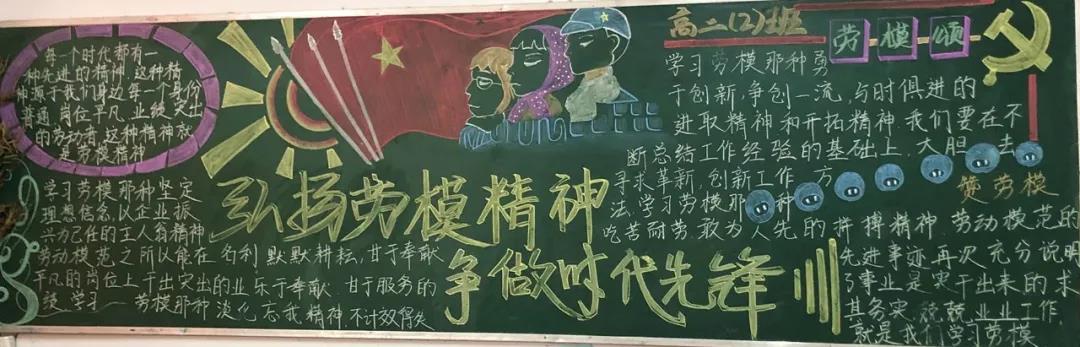 每一个时代都有一
种先进的精神,这种精
神源于我们身边每一个身份
普通,岗位平凡,业绩突出
的劳动者,这种精神就
是劳模精神
学习劳模那种坚定
理想信念,以企业振
兴为己任的主人翁精神
劳动模范之所以能在
平凡的岗位上干出突出的业
绩 学习 劳模那种淡化
名利,默默耕耘,甘于奉献
乐于奉献.甘于服务的
忘我精神 不计较得失
弘扬劳模精神
争做时代先锋
高二(2)班
劳模颂
学习劳模那种勇
于创新,争创一流,与时俱进的
进取精神和开拓精神.我们要在不
断总结工作经验的基础上,大胆 去
寻求革新,创新工作 方
法,学习劳模那 种
吃苦耐劳敢为人先的拼搏精神.劳动模范的
劳模
先进事迹再次充分说明
了事业是实干出来的求
其务实,兢兢业业工作,
就是我们学习劳模